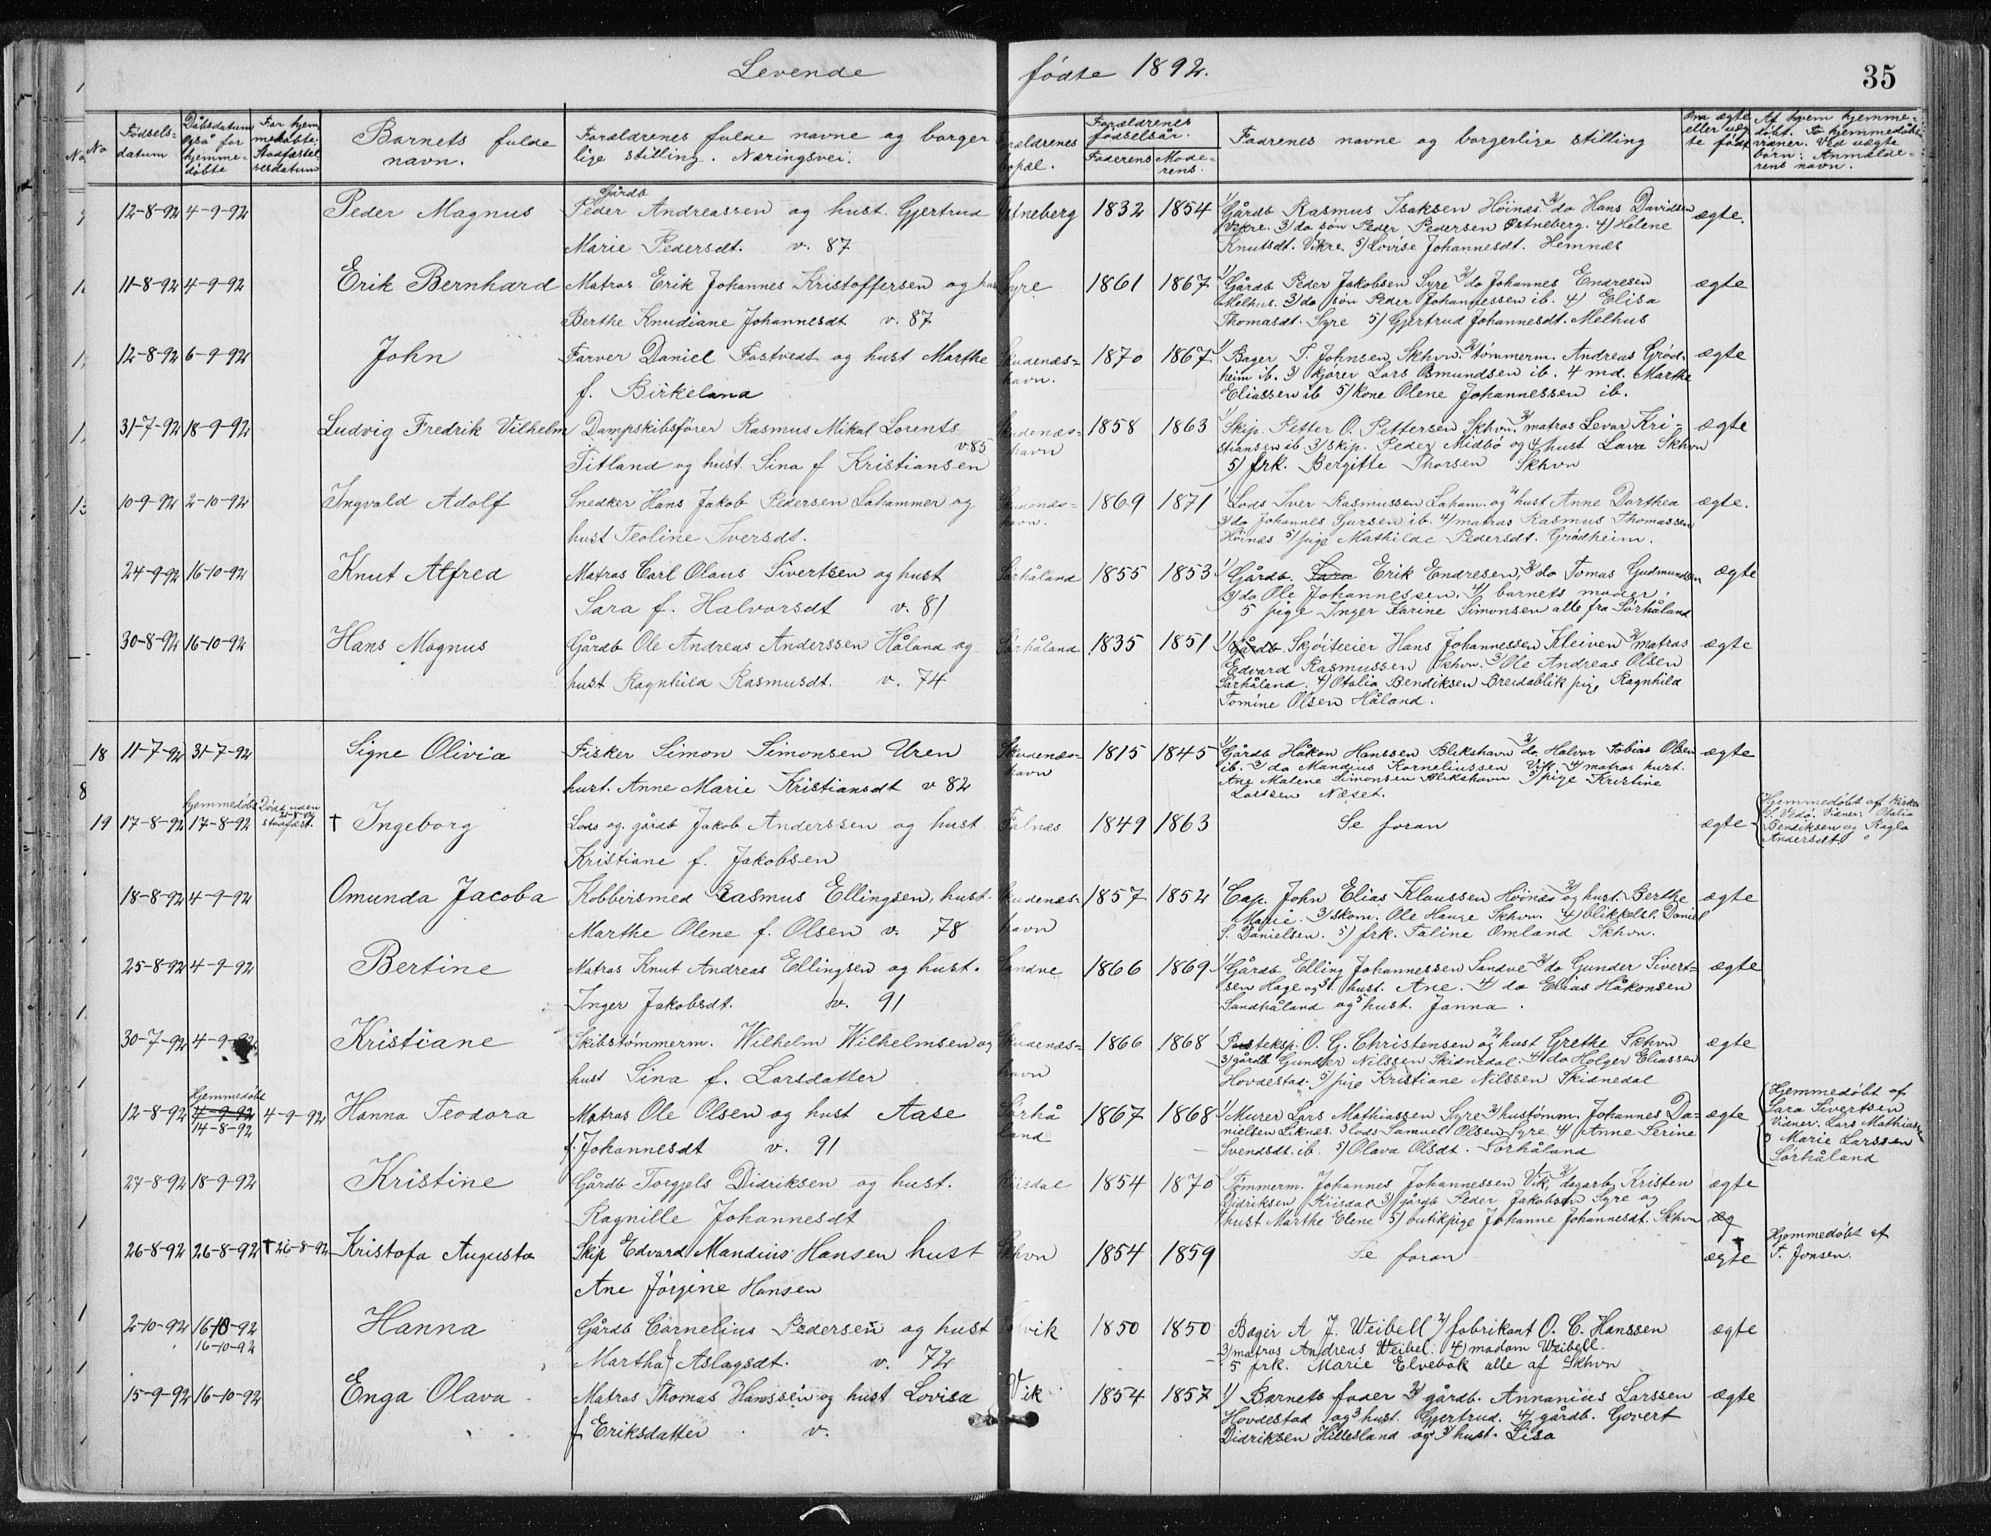 Levende fødte 1892.
35
No
Fødsels-
datum
Dåbsdatum
også for
hjemme-
døbte
For hjem
medøbte:
Stadfæstel
sesdatum
Barnets fulde
navn.
Forældrenes fulde navne og borger
lige stilling. Næringsvei.
Forældrenes
bopæl.
Forældrenes
fødselsår.
Faderens
Mode-
rens.
Fadrenes navne og borgerlige stilling
Om ægte
eller uæg
te født
Af hvem hjemme-
døbt. To hjemmedåbs
vidner. Ved uægte
børn: Anmelde-
rens navn.
12-8-92 4-9-92 Peder Magnus
Gårdb
Peder Andreassen og hust. Gjertrud
Marie Pedersdt. v. 87
Østneberg 1832 1854
1/ Gårdb Rasmus Isaksen Høinæs 2/ do Hans Davidsen
Vikre. 3/ do søn Peder Pedersen Østneberg. 4/ Helene
Knutsdt. Vikre. 5/ Lovise Johannesdt. Hemnæs
ægte.
11-8-92 4-9-92 Erik Bernhard
Matros Erik Johannes Kristoffersen og hus
Berthe Knudiane Johannesdt v. 87
Syre 1861 1867
1/ Gårdb Peder Jakobsen Syre 2/ do Johannes Endresen
Melhus. 3/ do søn Peder Johannessen ib. 4/ Elisa
Thomasdt. Syre 5/ Gjertrud Johannesdt. Melhus
ægte
12-8-92 6-9-92 John
Farver Daniel Fastvedt og hust Marthe
f. Birkeland
Skudenæs-
havn. 1870 1867
1/ Bager T. Johnsen Skhvn. 2/ tømmerm. Andreas Grød-
heim ib. 3/ kjører Lars Osmundsen ib. 4 md. Marthe
Eliassen ib 5/ kone Olene Johannessen ib.
ægte
31-7-92 18-9-92 Ludvig Fredrik Vilhelm
Dampskibsfører Rasmus Mikal Lorents
v. 85
Titland og hust. Sina f Kristiansen
Skudenæs-
havn 1858 1863
1/ Skip. Petter O. Pettersen Skhvn. 2/ matros Levar Kri-
stiansen ib 3/ skip. Peder Midbø og 4/ hust Lava Skhvn
5/ frk. Bergitte Thorsen Skhvn
ægte
10-9-92 2-10-92 Ingvald Adolf
Snedker Hans Jakob Pedersen Lahammer og
hust Teoline Iversdt.
Skudenæs-
havn. 1869 1871
1/ Lods Iver Rasmussen Laham. og 2/ hust Anne Dorthea
3/ do Johannes Sjursen ib. 4/ matros Rasmus Thomassen
Høinæs 5/ pige Mathilde Pedersdt. Grødheim.
ægte.
24-9-92 16-10-92 Knut Alfred
Matros Carl Olaus Sivertsen og hust
Sara f. Halvorsdt v. 81
Sørhåland 1855 1853
1/ Gårdb. Erik Endresen, 2/ do Tomas Gudmundsen
3/ do Ole Johannessen. 4/ barnets moder.
5 pige Inger Karine Simonsen alle fra Sørhåland
ægte
30-8-92 16-10-92 Hans Magnus
Gårdb Ole Andreas Anderssen Håland og
hust Ragnhild Rasmusdt. v. 74
Sørhåland 1835 1851
1/ Gårdb. Skøiteeier Hans Johannessen Kleiven 2/ matros
Edvard Rasmussen Skhvn. 3/ Ole Andreas Olsen
Sørhåland. 4/ Otalia Bendiksen Breidablik pige Ragnhild
Tomine Olsen Håland.
ægte
18 11-7-92 31-7-92 Signe Olivia
Fisker Simon Simonsen Uren
hust. Anne Marie Kristiansdt v 82
Skudenæs-
havn 1815 1845
1/ Gårdb Håkon Hanssen Blikshavn 2/ do Halvor Tobias Olsen
ib. 3/ do Mandius Korneliussen Vik 4/ matros hust.
Ane Malene Simonsen Blikshavn 5/ pige Kristine
Larssen Næset.
ægte
Hjemmedøbt
19 17-8-92 17-8-92
Død uden
stadfæst.
† Ingeborg
Lods og gårdb Jakob Anderssen og hust
Kristiane f. Jakobsen
Falnæs 1849 1863
Se foran
ægte
Hjemmedøbt af
Vidner: Otalia
Bendiksen og Ragla
Andersdt.
18-8-92 4-9-92 Omunda Jacoba
Kobbersmed Rasmus Ellingsen, hust.
Marthe Olene f. Olsen v. 78
Skudenæs-
havn 1857 1852
1/ Cap. John Elias Klaussen Høinæs 2/ og hust. Berthe
Marie. 3/ skom. Ole Hauge Skhvn. 4/ blikkelsl. Daniel
S. Danielsen. 5/ frk. Taline Omland Skhvn.
ægte
25-8-92 4-9-92 Bertine
Matros Knut Andreas Ellingsen og hust.
Inger Jakobsdt. v. 91
Sandve 1866 1869
1/ Gårdb Elling Johannessen Sandve 2/ do Gunder Sivert-
sen Hage og 3/ hust. Ane. 4/ do Elias Håkonsen
Sandhåland og 5 hust. Janna.
ægte
30-7-92 4-9-92 Kristiane
Skibstømmerm. Wilhelm Wilhelmsen og
hust Sina f. Larsdatter
Skudenæs-
havn 1866 1868
1/ Posteksp. O. G. Christensen og 2/ hust Grethe Skhvn
3/ gårdb Gunder Nilssen Skidnedal. 4/ do Holger Eliassen
Hovdestad. 5/ pige Kristiane Nilssen Skidnedal
ægte
Hjemmedøbt
12-8-92 4-9-92 4-9-92 Hanna Teodora
14-8-92
Matros Ole Olsen og hust Aase
f. Johannesdt v. 91
Sørhå
land 1867 1868
1/ Murer Lars Mathiassen Syre 2/ hustømm. Johannes Da-
nielsen Liknæs. 3 lods Samuel Olsen Syre 4/ Anne Serine
Svendsdt. ib. 5/ Olava Olsdt. Sørhåland
ægte
Hjemmedøbt af
Sara Sivertsen
Vidner: Lars Mathiassen
& Marie Larssen
Sørhåland
27-8-92 18-9-92 Kristine
Gårdb Torgjels Didriksen og hust.
Ragnille Johannesdt
Kiisdal 1854 1870
1/ Tømmerm. Johannes Johannessen Vik, 2/ dagarb. Kristen
Didriksen Kiisdal 3/ gårdb Peder Jakobsen Syre og
4 hust Marthe Elene 5/ butikpige Johanne Johannesdt. Skhvn
ægte
æg
26-8-92 26-8-92 † 26-8-92 Kristofa Augusta
Skip Edvard Mandius Hansen hust
Ane Jørgine Hansen
Skhvn 1854 1859
Se foran
†
ægte
Hjemmedøbt af
T. Jonsen.
2-10-92 16-10-92 Hanna
16-10-92
Gårdb Cornelius Pedersen og hust
Martha Aslagsdt. v. 72
Solvik 1850 1850
Bager A J. Weibell 2/ fabrikant O. C. Hanssen
3/ matros Andreas Weibel. 4/ madam Weibell.
5 frk. Marie Elvebak alle af Skhvn
ægte
15-9-92 16-10-92 Enga Olava
Matros Thomas Hanssen og hust Lovisa
f Eriksdatter v.
Vik 1854 1857
1/ Barnets fader 2/ gårdb. Annanius Larssen
Hovdestad og 3 hust. Gjertrud. 4/ gårdb. Govert
Didriksen Hillesland og 5/ hust. Lisa
ægte